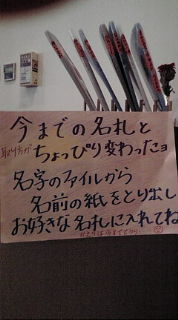 今までの名札と
取り方が ちょっぴり変わったョ
名字のファイルから
名前の紙をとり出し
お好きな名札に入れてね